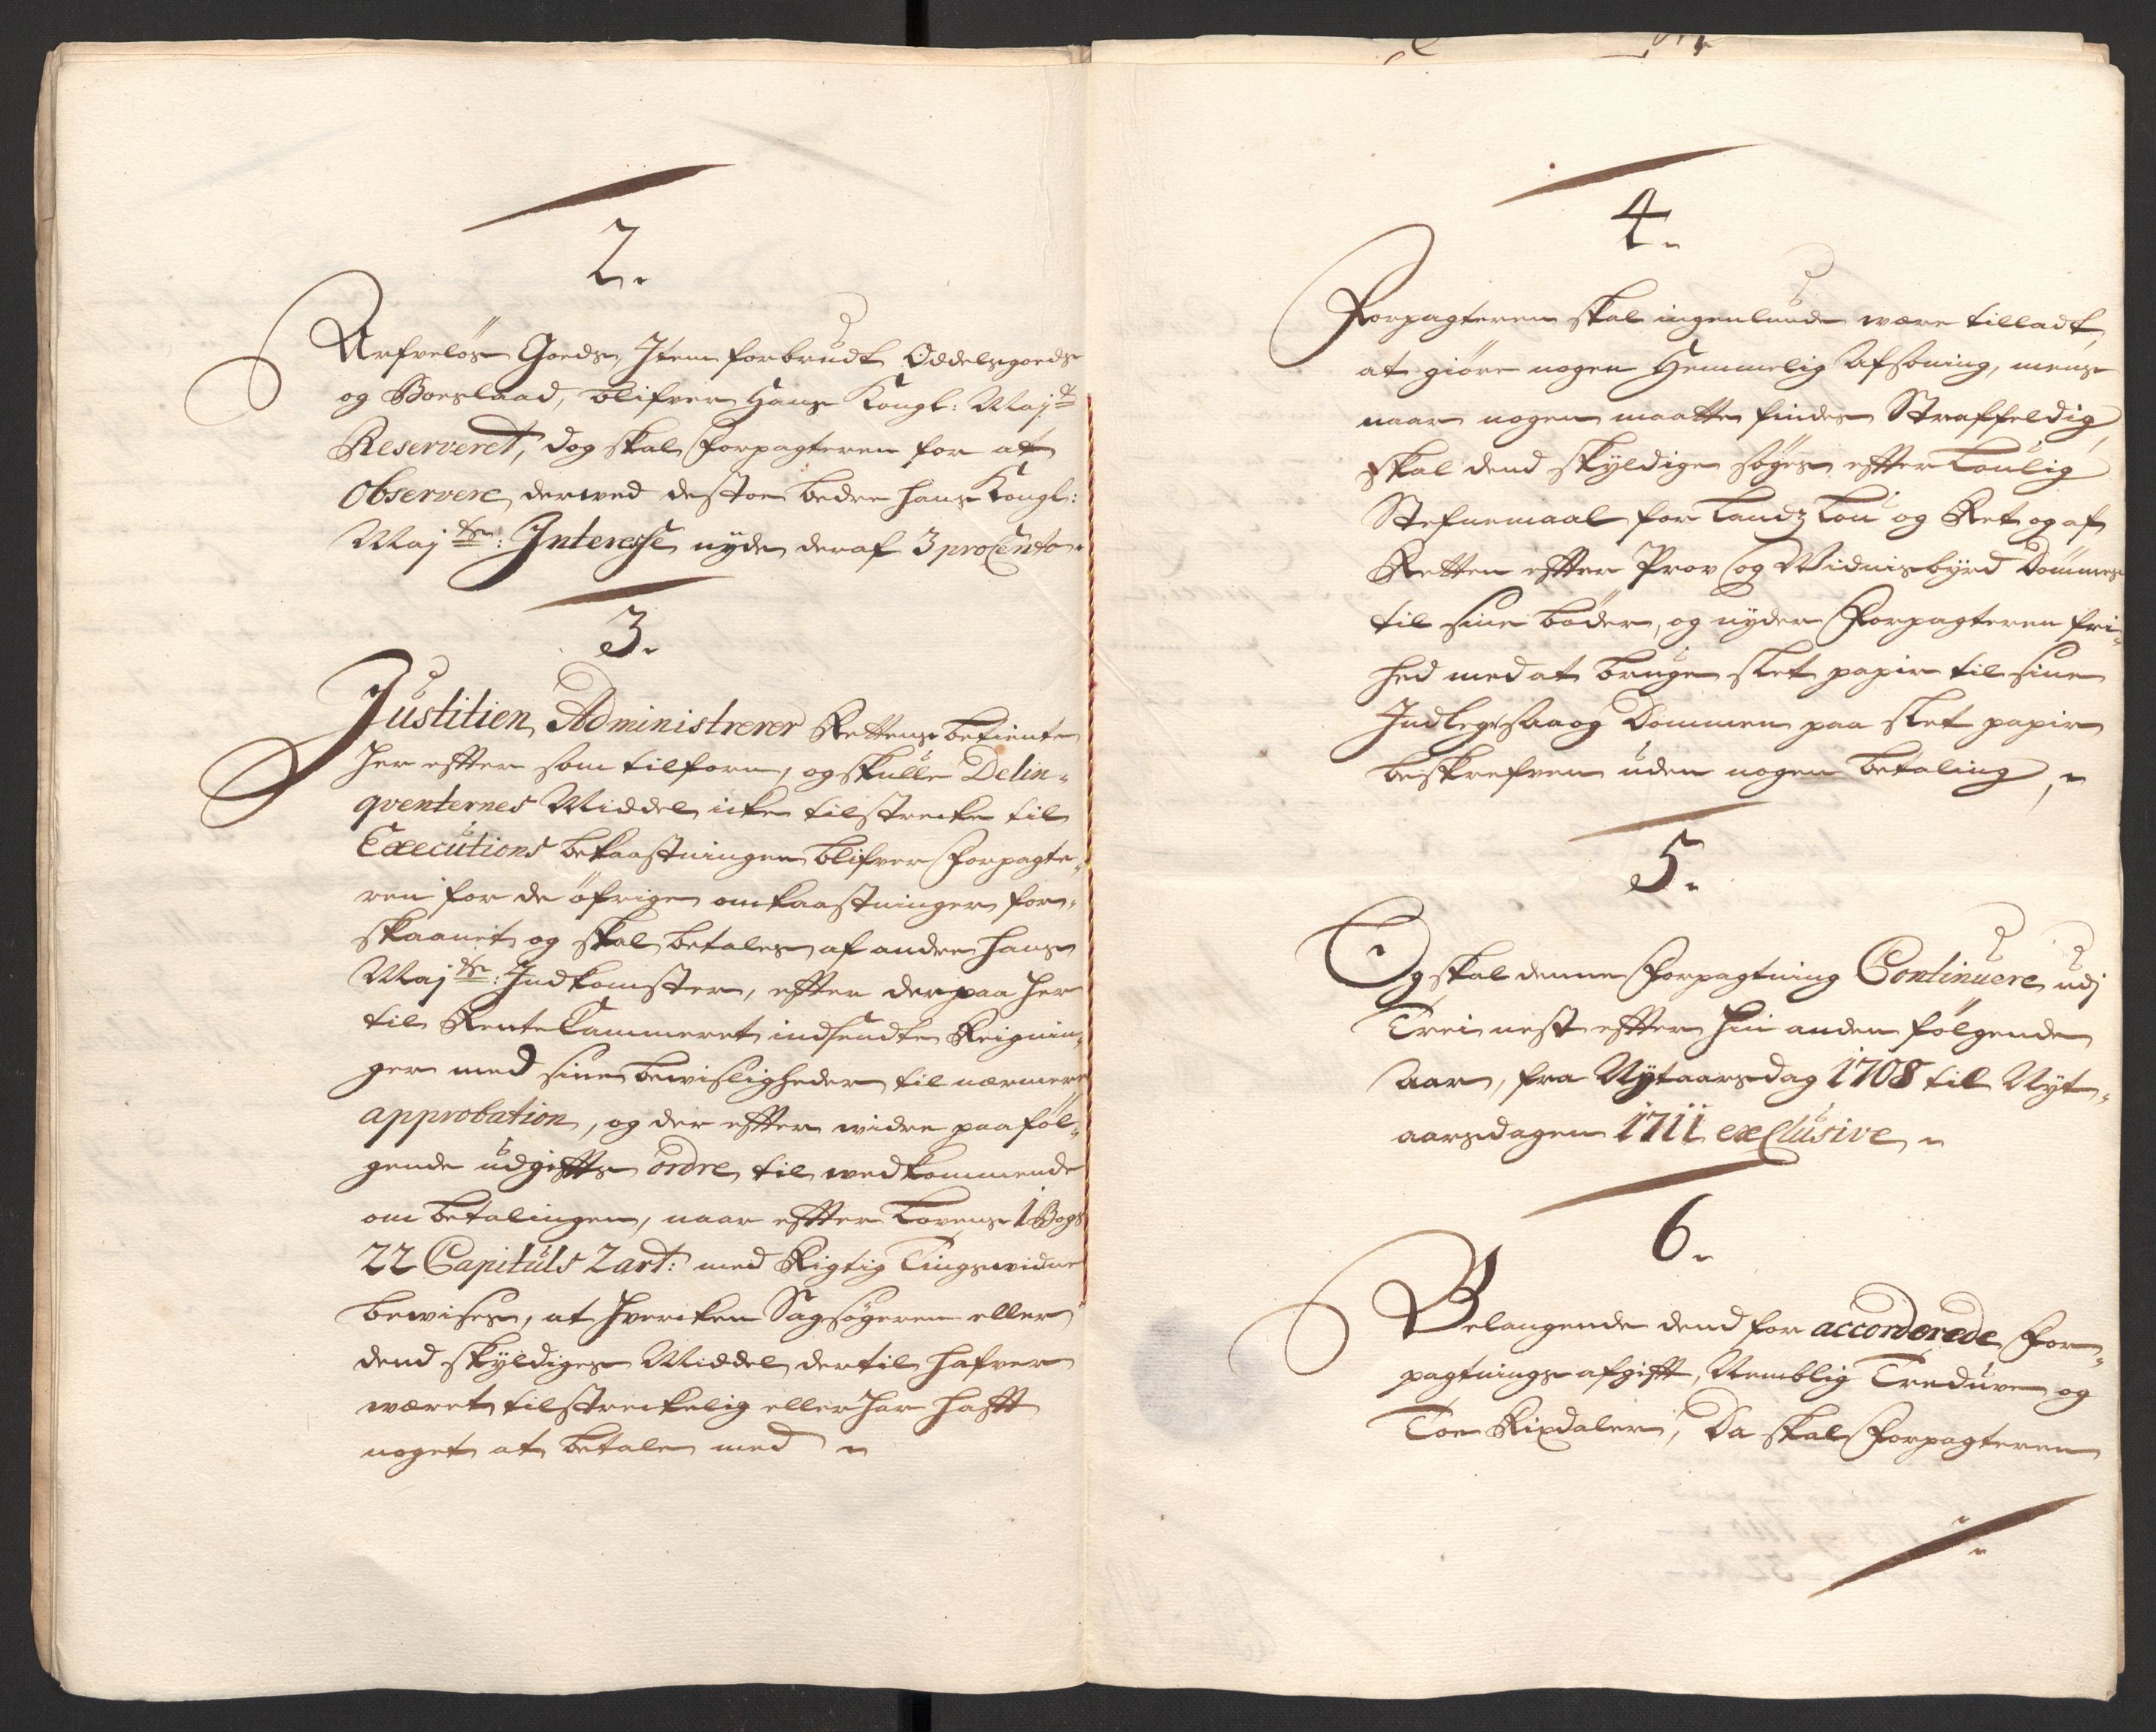 2.
Arfveløs Goeds, Item forbrudt Oddelsgoeds
og Boeslaad, blifver Hans Kongl: Maj:t
Reserveret, dog skal Forpagteren for at
Observere derved destoe bedre hans Kongl:
Maj:ts Interesse nyde deraf 3 pro Cento.
3.
Justitien Administrerer Rettens betiente
her effter som tilforn, og skulle Delin-
qventernes Middel icke tilstrecke til
Executions bekaastningen blifver Forpagte-
ren for de øfrige omkaastninger for-
skaanet og skal betales af andre hans
Maj:ts Indkomster, effter derpaa her
til Rente Cammeret indsendte Reignin-
ger med sine bevisligheder til nærmere
approbation, og der effter widre paaføl-
gende udgiffts ordre til wedkommende
om betalingen, naar effter Lovens 1 Bogs
22 Capituls 2 art: med Rigtig Tingswidne
bewises, at hvercken Sagsøgeren eller
dend skyldiges Middel dertil hafver
wæret tilstreckelig eller har hafft
noget at betale med
4.
Forpagteren skal ingenlunde være tilladt
at giøre nogen Hemmelig Afsoning, mens
naar nogen maatte findes Straffeldig
skal dend skyldige søges effter Loulig
Stefnemaal for Landz Lou og Ret og af
Retten effter Prov og Widnisbyrd Dømmes
til sine bøder, og nyder Forpagteren fri-
hed med at bruge slet papir til sine
Indleg, saa og Dommen paa slet papir
beskrefven uden nogen betaling,
5.
Og skal denne Forpagtning Continuere udj
Trei nest effter hin anden følgende
Aar, fra Nytaarsdag 1708 til Nyt-
aarsdagen 1711 exclusive,
6.
Belangende dend for accorderede For-
pagtnings afgifft, Nemblig Treduve og
Toe Rixdaler, Da skal Forpagteren